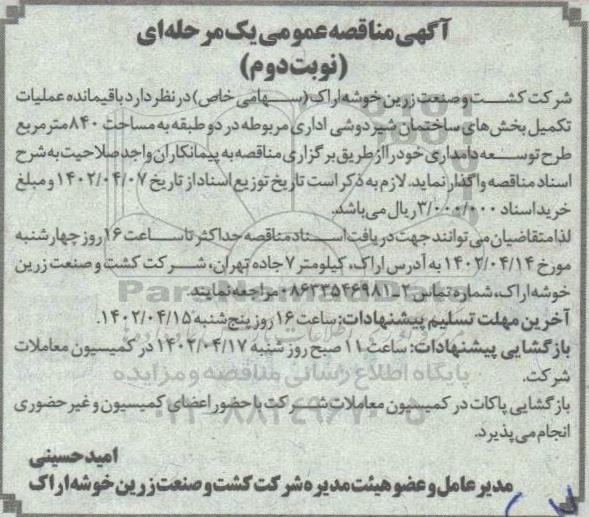 آگهی مناقصه عمومی یک مرحله‌ای
(نوبت دوم)
شرکت کشت و صنعت زرین خوشه اراک (سهامی خاص) در نظر دارد باقیمانده عملیات
تکمیل بخش‌های ساختمان شیردوشی اداری مربوطه در دو طبقه به مساحت ۸۴۰ متر مربع
طرح توسعه دامداری خود را از طریق برگزاری مناقصه به پیمانکاران واجد صلاحیت به شرح
اسناد مناقصه واگذار نماید. لازم به ذکر است تاریخ توزیع اسناد از تاریخ ۱۴۰۲/۰۴/۰۷ و مبلغ
خرید اسناد ۳/۰۰۰/۰۰۰ ریال می‌باشد.
لذا متقاضیان می‌توانند جهت دریافت اسناد مناقصه حداکثر تا ساعت ۱۶ روز چهارشنبه
مورخ ۱۴۰۲/۰۴/۱۴ به آدرس اراک، کیلومتر ۷ جاده تهران، شرکت کشت و صنعت زرین
خوشه اراک، شماره تماس ۲ـ۰۸۶۳۳۵۴۶۹۸۱ مراجعه نمایند.
آخرین مهلت تسلیم پیشنهادات: ساعت ۱۶ روز پنج‌شنبه ۱۴۰۲/۰۴/۱۵.
بازگشایی پیشنهادات: ساعت ۱۱ صبح روز شنبه ۱۴۰۲/۰۴/۱۷ در کمیسیون معاملات
شرکت.
پایگاه اطلاع رسانی مناقصه و مزایده
بازگشایی پاکات در کمیسیون معاملات شرکت با حضور اعضای کمیسیون و غیر حضوری
انجام می‌پذیرد.
امید حسینی
مدیر عامل و عضو هیئت مدیره شرکت کشت و صنعت زرین خوشه اراک